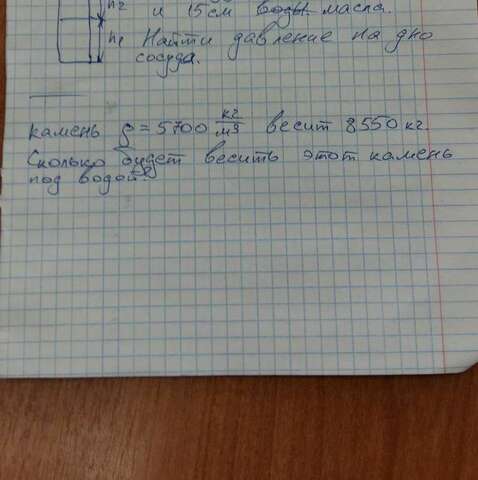 h₂ и 15см воды масла.
h₁ Найти давление на дно
сосуда.
камень ρ = 5700 кг/м³ весит 8550 кг.
Сколько будет весить этот камень
под водой?